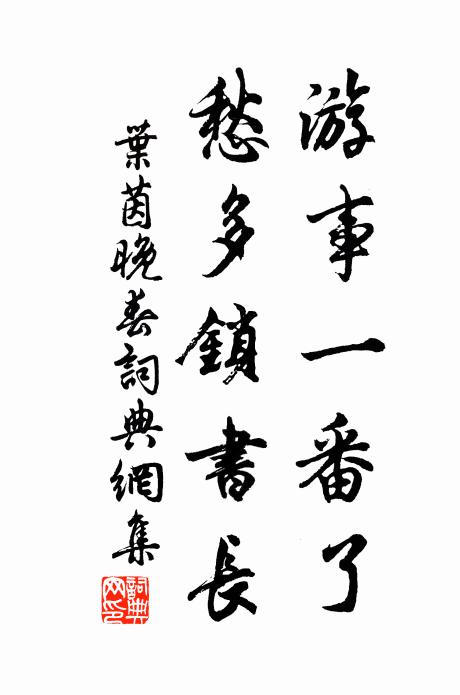 游事一番了
愁多鎖書長
葉茵晚春詞典網集
詞典網印